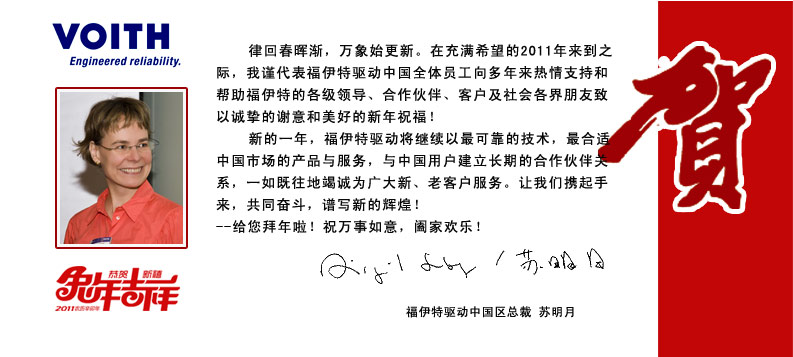 VOITH
Engineered reliability.
律回春晖渐，万象始更新。在充满希望的2011年来到之
际，我谨代表福伊特驱动中国全体员工向多年来热情支持和
帮助福伊特的各级领导、合作伙伴、客户及社会各界朋友致
以诚挚的谢意和美好的新年祝福！
新的一年，福伊特驱动将继续以最可靠的技术，最合适
中国市场的产品与服务，与中国用户建立长期的合作伙伴关
系，一如既往地竭诚为广大新、老客户服务。让我们携起手
来，共同奋斗，谱写新的辉煌！
--给您拜年啦！祝万事如意，阖家欢乐！
苏明月
福伊特驱动中国区总裁 苏明月
恭贺 新禧
兔年吉祥
2011
贺